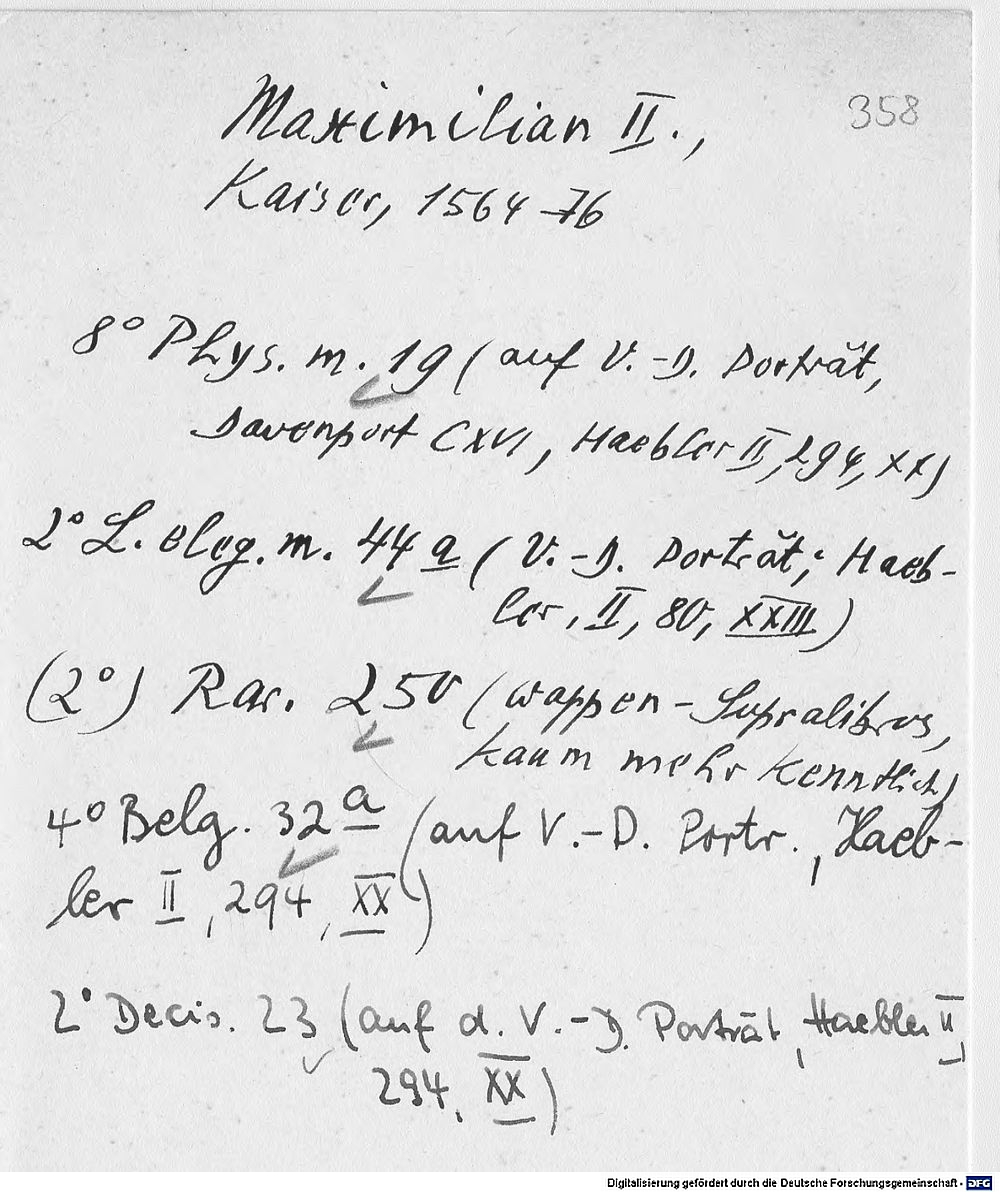 358
Maximilian II.,
Kaiser, 1564-76
8° Phys. m. 19 (auf V.-D. Porträt,
Davenport CXVI, Haebler II, 294, XX)
2° L. eleg. m. 44 a (V.-D. Porträt; Haeb-
ler, II, 80, XXIII)
(2°) Rar. 250 (Wappen-Supralibros,
kaum mehr kenntlich)
4° Belg. 32 a (auf V.-D. Portr., Haeb-
ler II, 294, XX)
2° Decis. 23 (auf d. V.-D. Porträt, Haebler II,
294, XX)
Digitalisierung gefördert durch die Deutsche Forschungsgemeinschaft - DFG